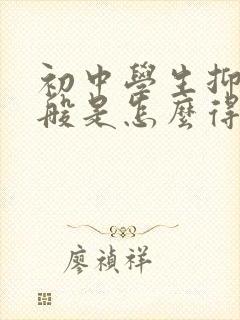 初中學生抑
般是怎麼得
廖禎祥